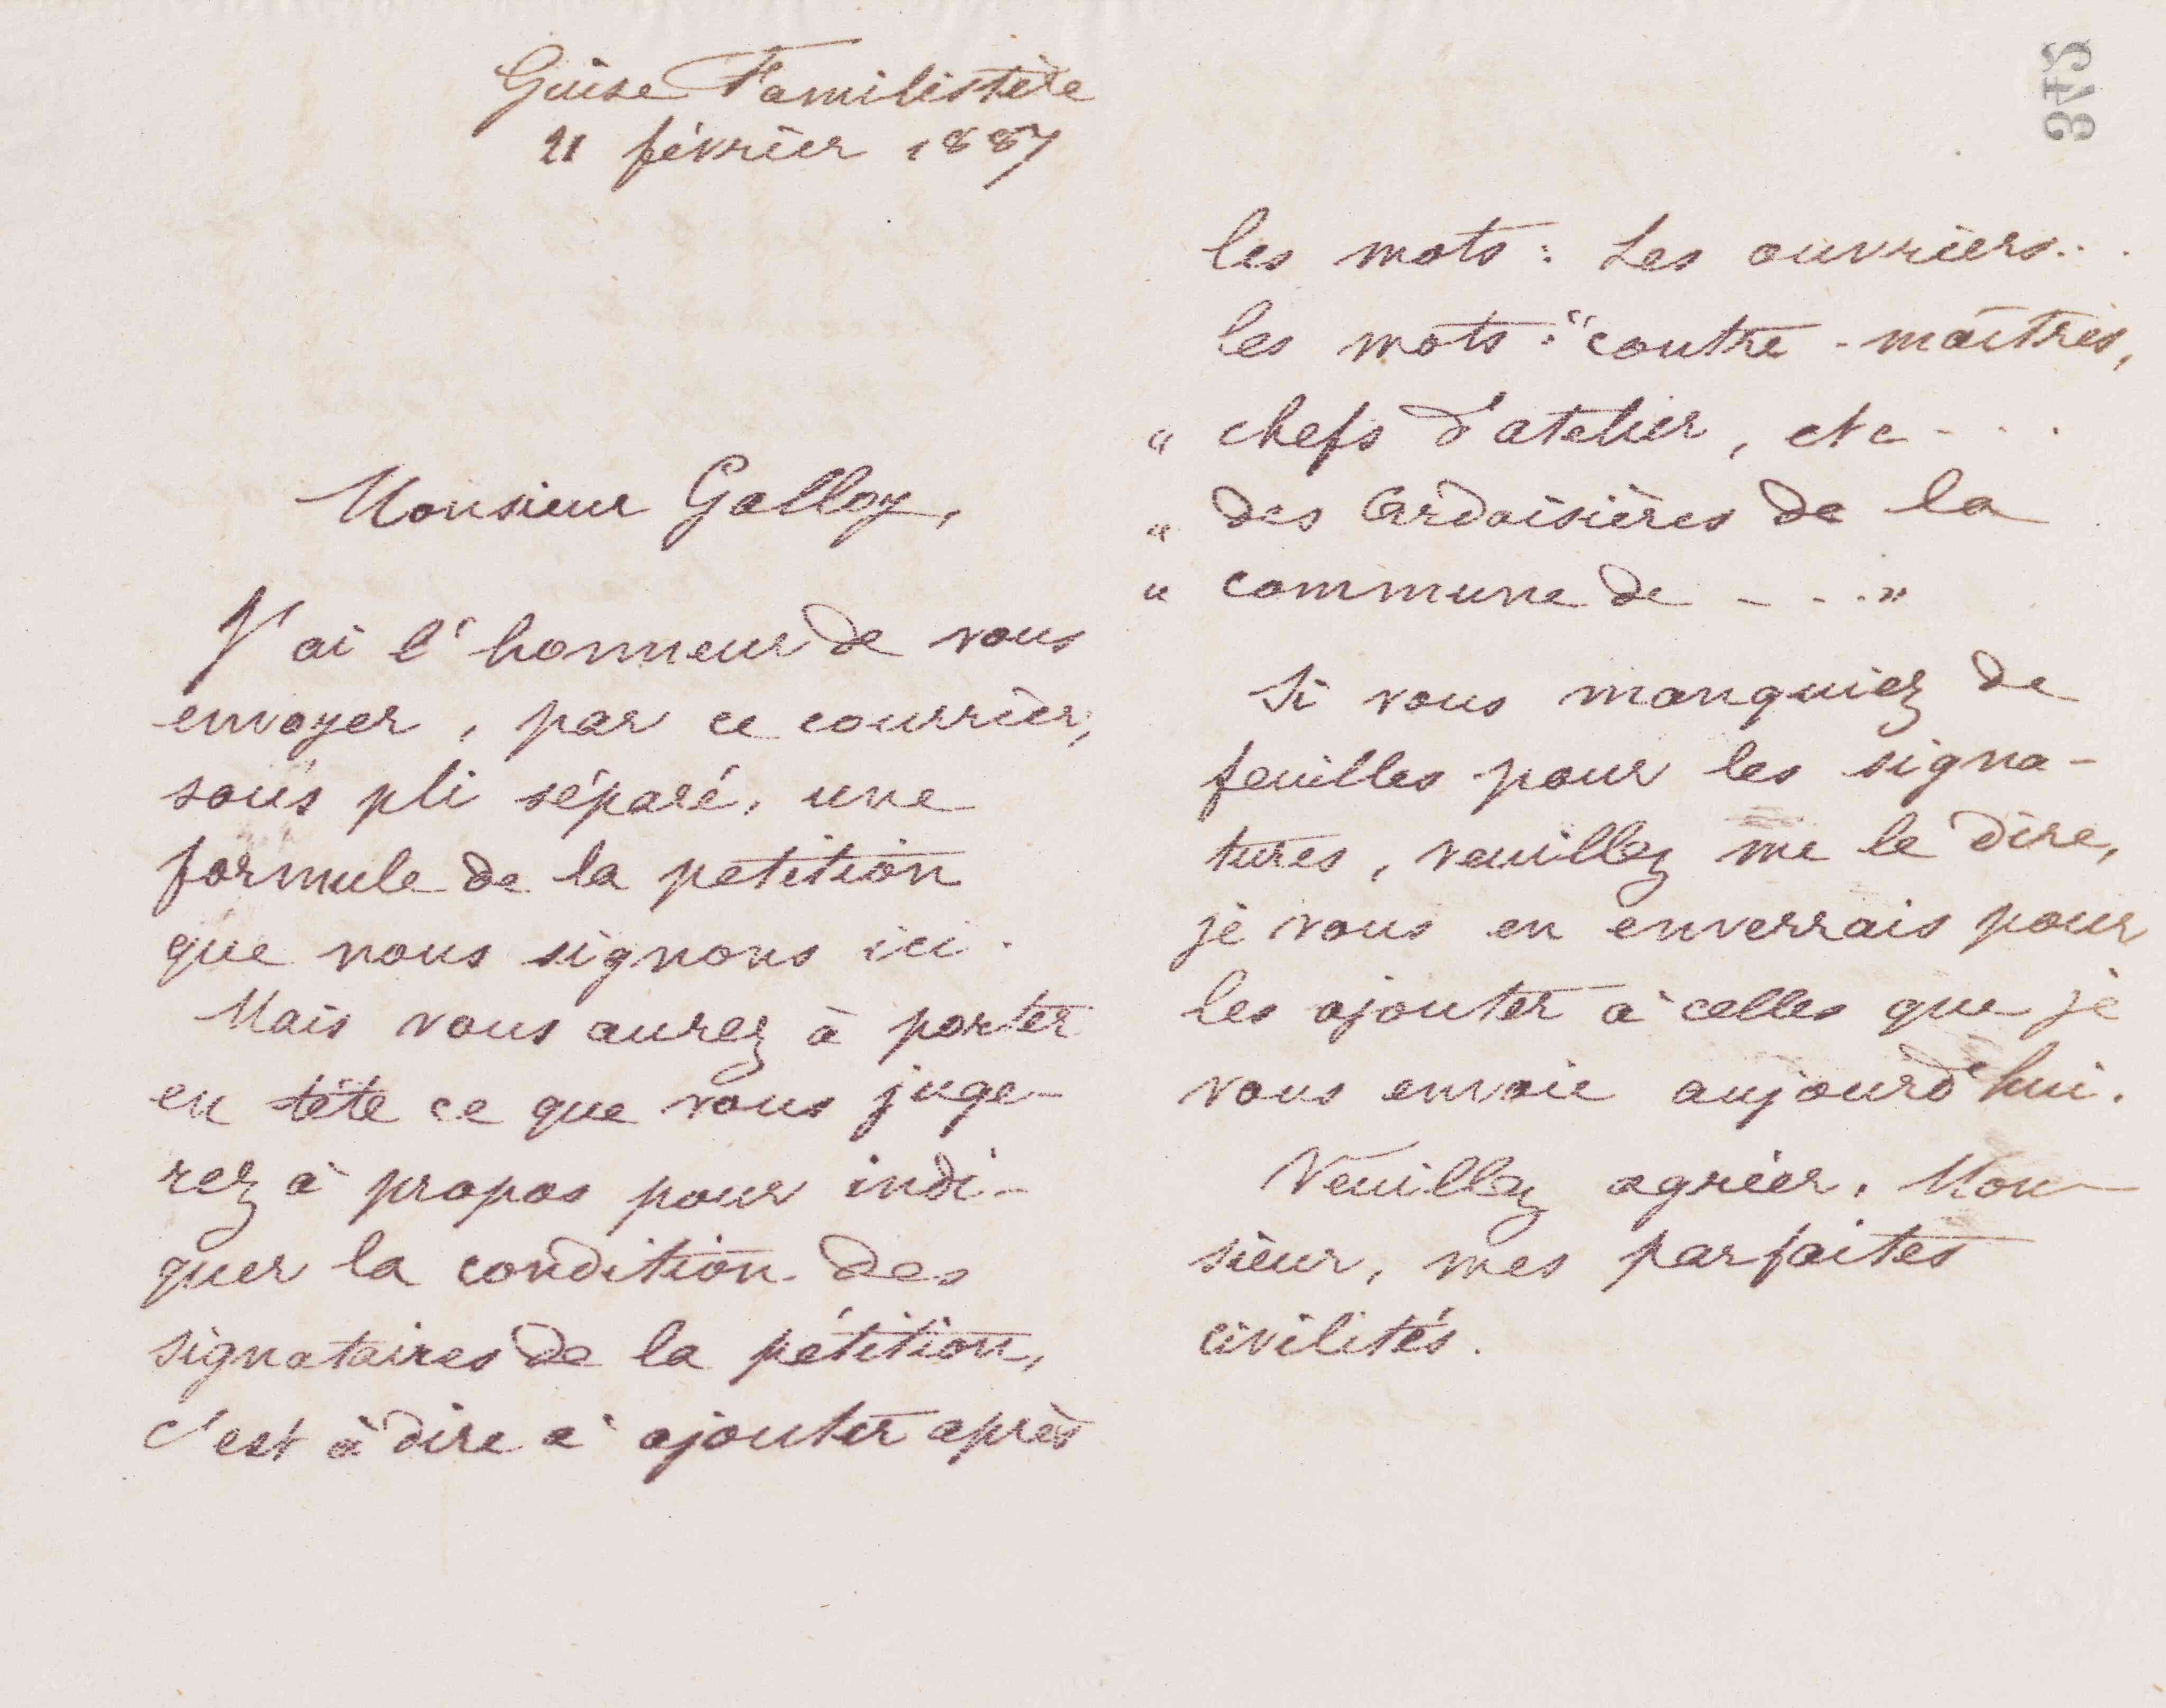 Guise Familistère
21 février 1887
Monsieur Galloy,
J'ai l'honneur de vous
envoyer, par ce courrier,
sous pli séparé, une
formule de la petition
que nous signons ici.
Mais vous aurez à porter
en tête ce que vous juge-
rez à propos pour indi-
quer la condition des
signataires de la pétition,
c'est à dire à ajouter après
342
les mots : Les ouvriers...
les mots : "contre-maîtres,
" chefs d'atelier, etc - . .
" des Ardoisières de la
" commune de - - . . "
Si vous manquiez de
feuilles pour les signa-
tures, veuillez me le dire,
je vous en enverrais pour
les ajouter à celles que je
vous envoie aujourd'hui.
Veuillez agréer, Mon-
sieur, mes parfaites
civilités.